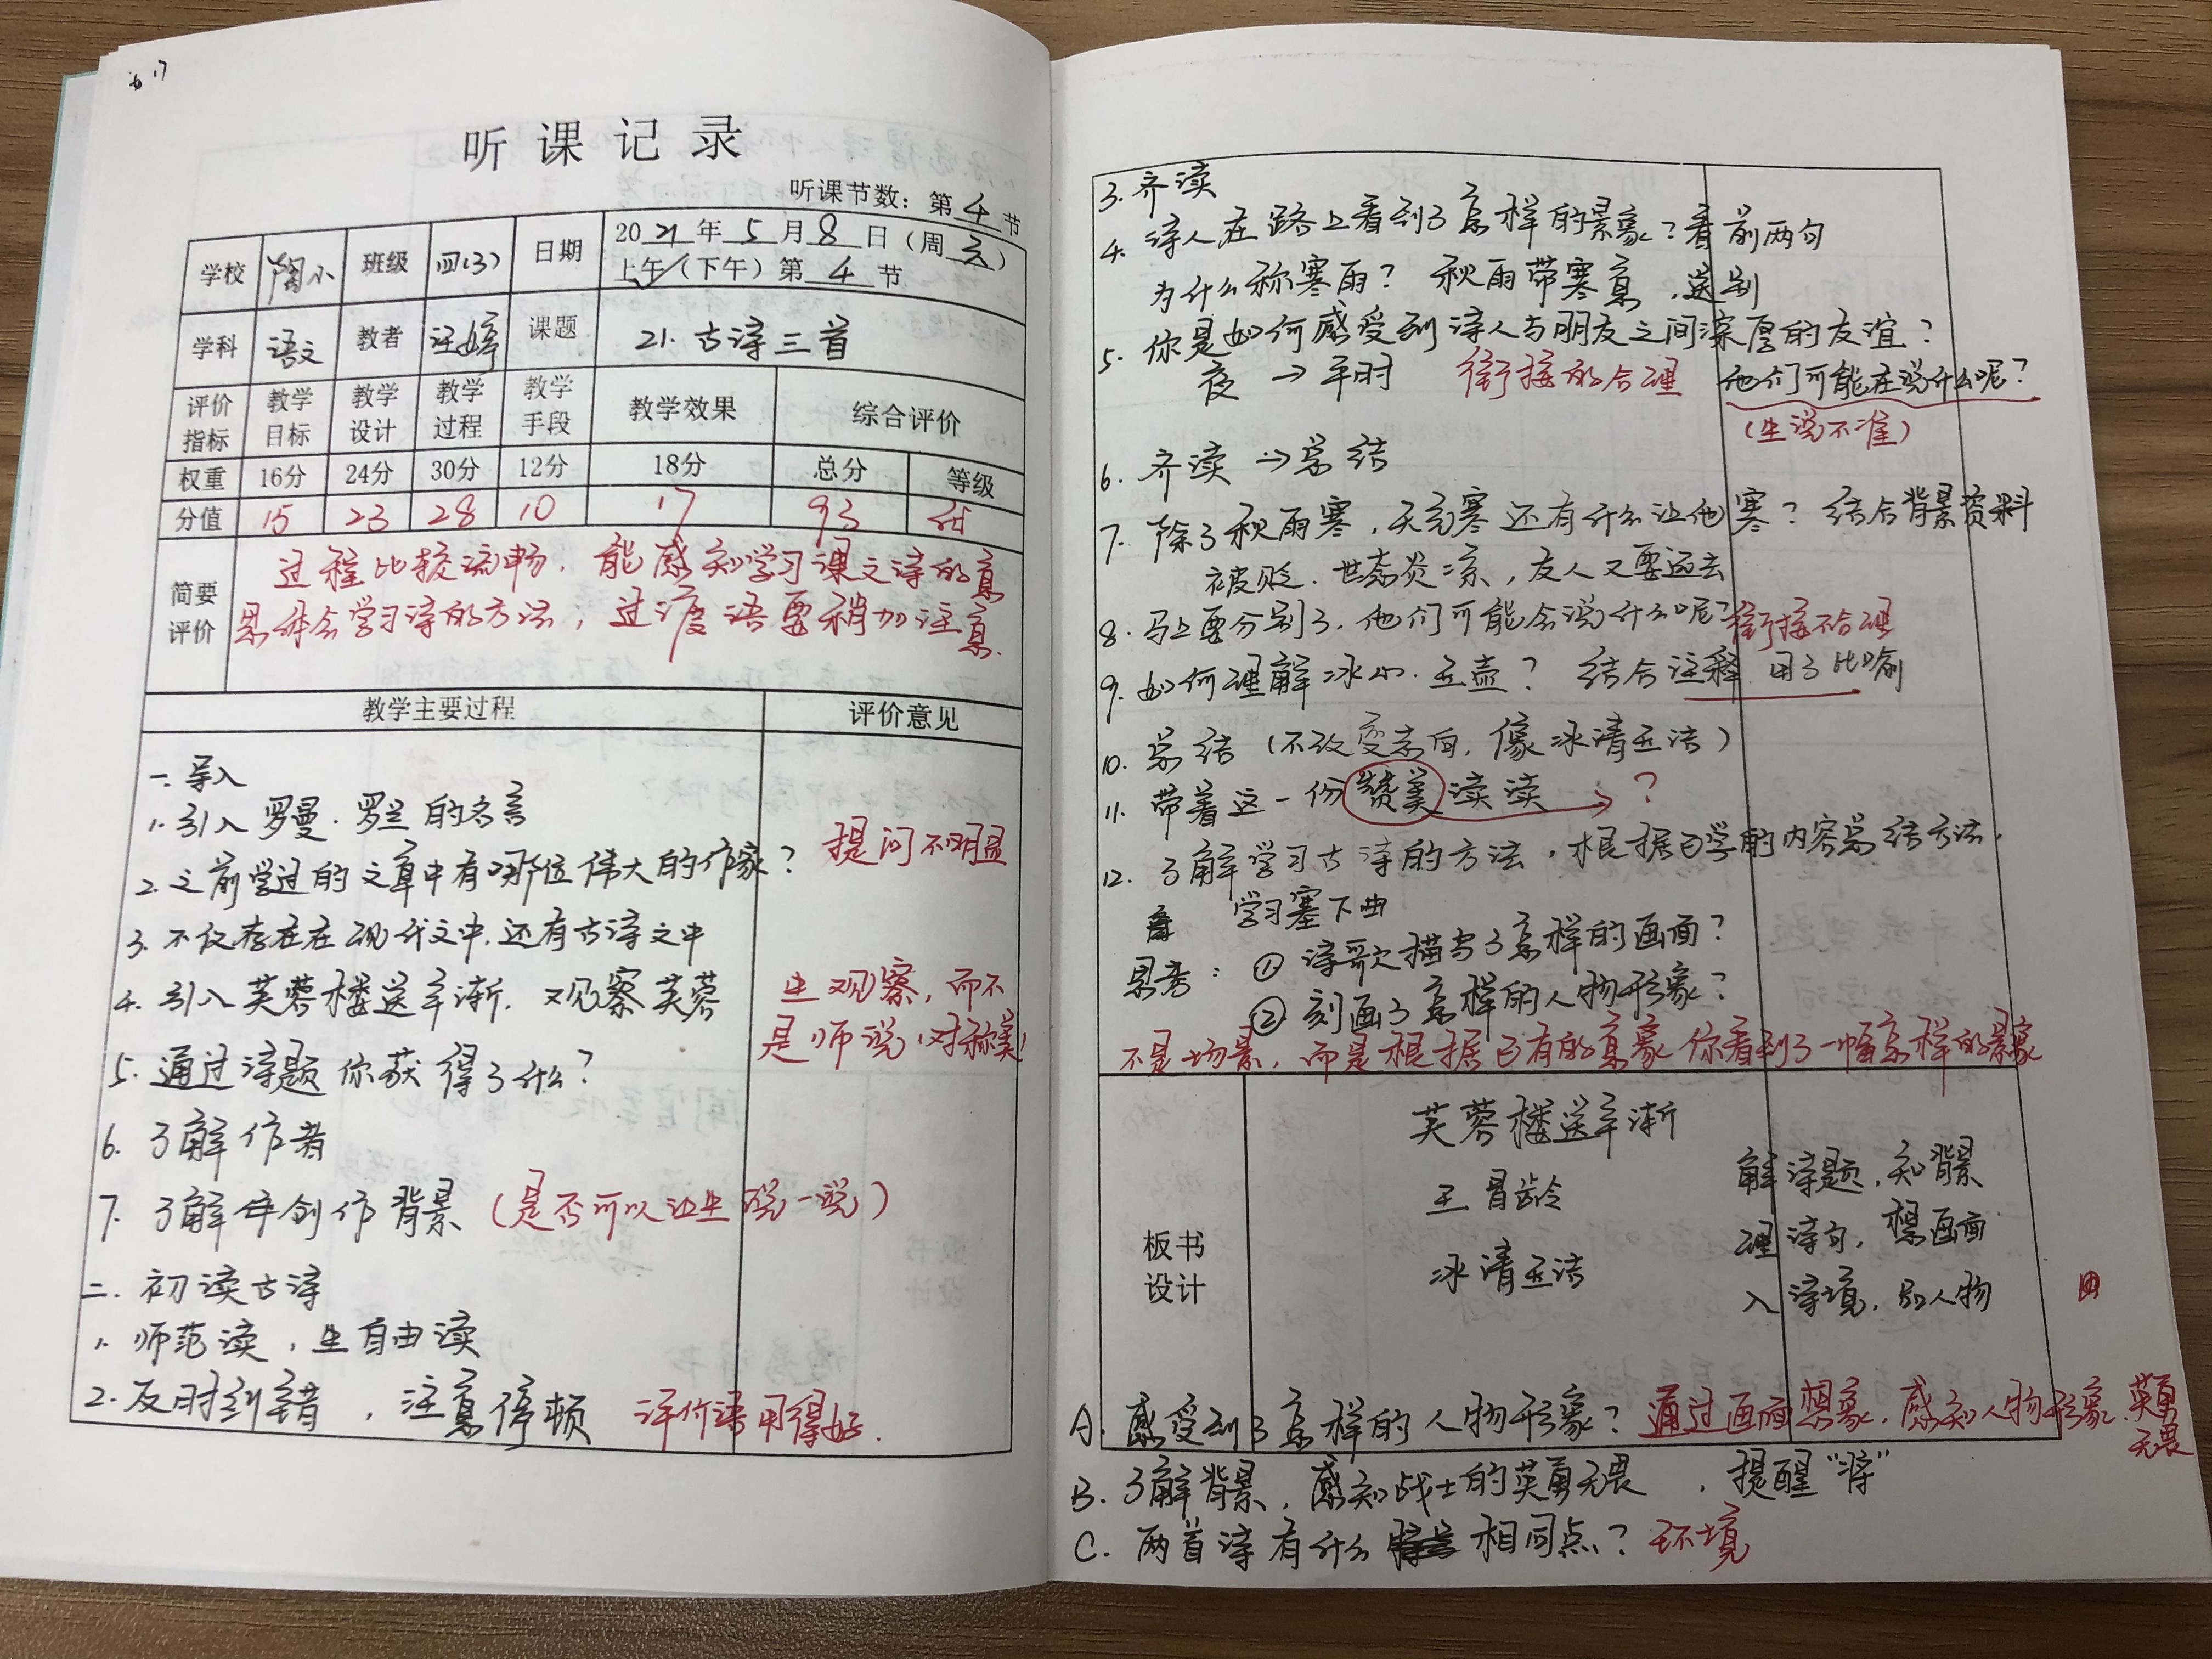 听课记录
听课节数：第4节
学校 陶小 班级 四(3) 日期 2021年5月8日（周三）
上午（下午）第4节
学科 语文 教者 汪婷 课题 21.古诗三首
评价指标 教学目标 教学设计 教学过程 教学手段 教学效果 综合评价
权重 16分 24分 30分 12分 18分 总分 等级
分值 15 23 28 10 17 93
简要评价 过程比较流畅，能感知学习课文诗的意
思体会学习诗的方法，过渡语要稍加注意.
教学主要过程 评价意见
一.导入
1.引入罗曼.罗兰的名言
2.之前学过的文章中有哪位伟大的作家？ 提问不明显
3.不仅存在在现代文中,还有古诗文中
4.引入芙蓉楼送辛渐.观察芙蓉 生观察，而不
是师说（对称美）
5.通过诗题你获得了什么？
6.了解作者
7.了解作创作背景（是否可以让生说一说）
二.初读古诗
1.师范读，生自由读
2.及时纠错，注意停顿 评价语用得好.
3.齐读
4.诗人在路上看到了怎样的景象？看前两句
为什么称寒雨？ 秋雨带寒意，送别
5.你是如何感受到诗人与朋友之间深厚的友谊？
夜→平时 衔接的合理 他们可能在说什么呢？
（生说不准）
6.齐读→总结
7.除了秋雨寒，天气寒还有什么让他寒？结合背景资料
被贬.世态炎凉，友人又要远去
8.马上要分别了,他们可能会说什么呢？衔接不合理
9.如何理解冰心.玉壶？ 结合注释 用了比喻
10.总结（不改变志向,像冰清玉洁）
11.带着这一份赞美读读→？
12.了解学习古诗的方法，根据已学的内容总结方法.
学习塞下曲
思考：①诗歌描写了怎样的画面？
②刻画了怎样的人物形象？
不是场景，而是根据已有的意象你看到了一幅怎样的景象
板书设计
芙蓉楼送辛渐
王昌龄
冰清玉洁
解诗题，知背景
理诗句，想画面
入诗境，知人物
A.感受到了怎样的人物形象？通过画面想象，感知人物形象.英勇
无畏
B.了解背景，感知战士的英勇无畏，提醒“将”
C.两首诗有什么相同点？环境